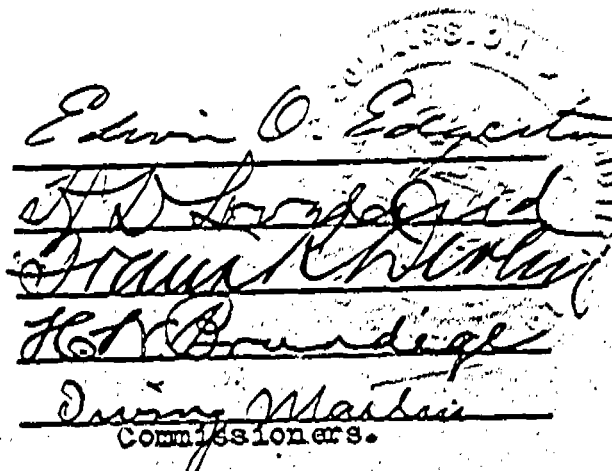 MISSION
Edwin O. Edgerton
H D Loveland
Frank R Devlin
H. W. Brundige
Irving Martin
Commissioners.